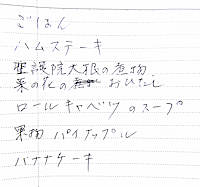 ごはん
ハムステーキ
聖護院大根の煮物
菜の花のおひたし
ロールキャベツのスープ
果物 パイナップル
バナナケーキ